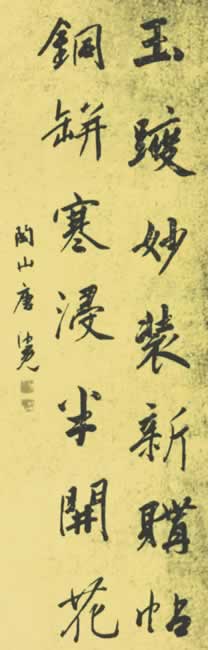 玉躞妙裝新購帖
銅缾寒浸半開花
陶山唐仲冕